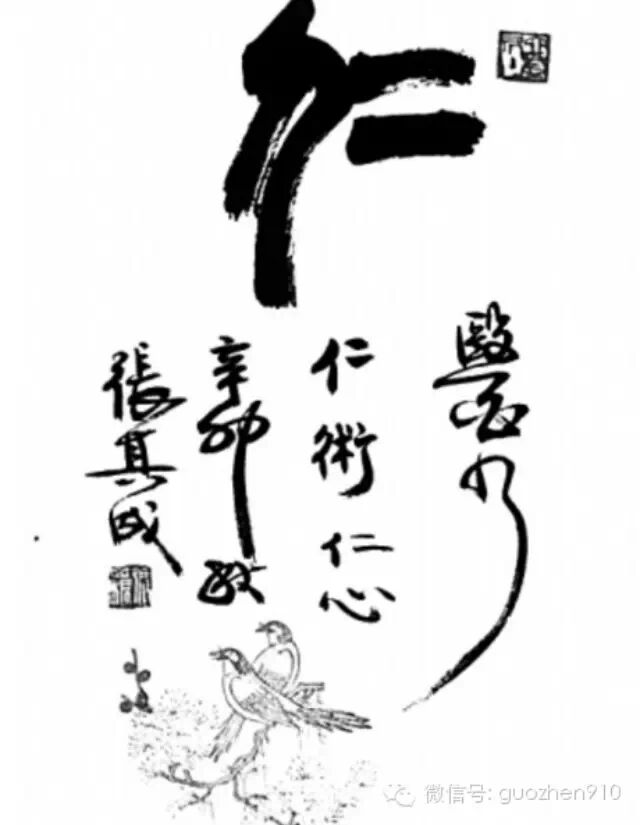 仁
醫乃
仁術仁心
辛卯
張其成
微信号: guozhen910